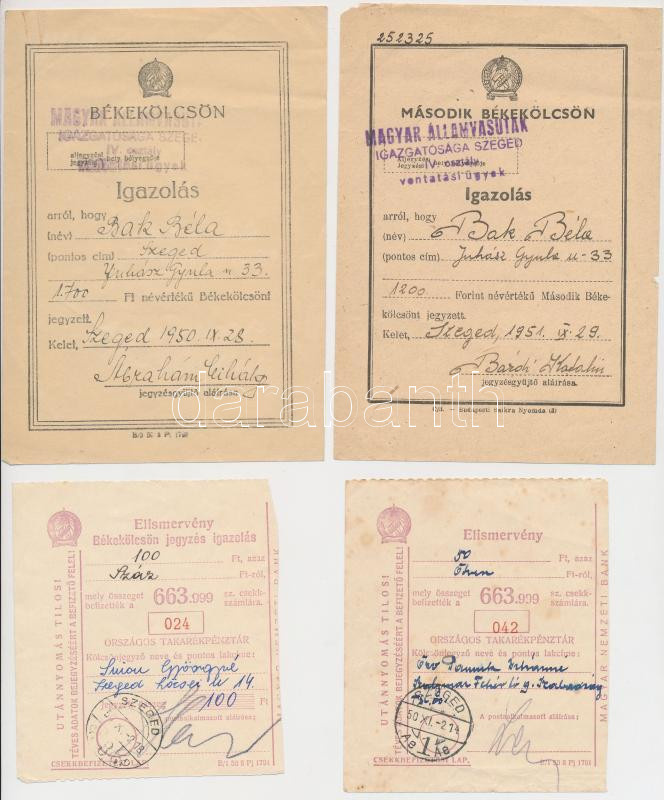 BÉKEKÖLCSÖN
MAGYAR ÁLLAMVASUT
IGAZGATÓSÁGA SZEGE
IV. osztály
Igazolás
arról, hogy
(név) Bak Béla
(pontos cím) Szeged
Juhász Gyula u 33.
1.700 Ft névértékű Békekölcsönt
jegyzett.
Kelet, Szeged 1950. IX. 28.
Ábrahám Mihály
jegyzésgyűjtő aláírása
B/5 50 8 Pj 1790
252325
MÁSODIK BÉKEKÖLCSÖN
MAGYAR ÁLLAMVASUTAK
IGAZGATÓSÁGA SZEGED
IV. osztály
vontatási ügyek
Igazolás
arról, hogy
(név) Bak Béla
(pontos cím) Juhász Gyula u-33
1200 Forint névértékű Második Béke-
kölcsönt jegyzett.
Kelet, Szeged, 1951. IX. 29.
Bárdi Katalin
jegyzésgyűjtő aláírása.
Budapesti Szikra Nyomda
Elismervény
Békekölcsön jegyzés igazolás
100 Ft, azaz
Száz Ft-ról,
mely összeget
befizették a 663.999 sz. csekk-
számlára.
024
ORSZÁGOS TAKARÉKPÉNZTÁR
Kölcsönjegyző neve és pontos lakcíme:
Simon Györgyné
Szeged Lőcsei u 14.
100 Ft
A postaalkalmazott aláírása:
SZEGED
CSEKKBEFIZETÉSI LAP.
B/1 50 8 Pj 1791
UTÁNNYOMÁS TILOS!
TÉVES ADATOK BEJEGYZÉSÉÉRT A BEFIZETŐ FELEL!
MAGYAR NEMZETI BANK
Elismervény
50 Ft, azaz
Ötven Ft-ról,
mely összeget
befizették a 663.999 sz. csekk-
számlára.
042
ORSZÁGOS TAKARÉKPÉNZTÁR
Kölcsönjegyző neve és pontos lakcíme:
Özv
A postaalkalmazott aláírása:
SZEGED
50 XI.-2 14
CSEKKBEFIZETÉSI LAP.
B/1 50 8 Pj 1791
UTÁNNYOMÁS TILOS!
TÉVES ADATOK BEJEGYZÉSÉÉRT A BEFIZETŐ FELEL!
MAGYAR NEMZETI BANK
darabanth